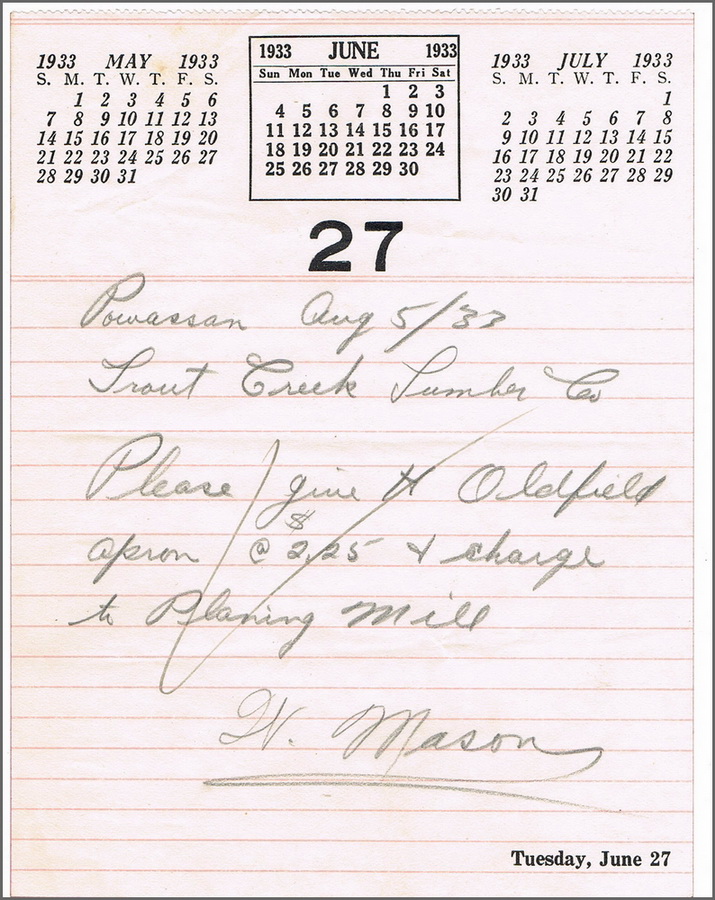 1933 MAY 1933
S. M. T. W. T. F. S.
1 2 3 4 5 6
7 8 9 10 11 12 13
14 15 16 17 18 19 20
21 22 23 24 25 26 27
28 29 30 31
1933 JUNE 1933
Sun Mon Tue Wed Thu Fri Sat
1 2 3
4 5 6 7 8 9 10
11 12 13 14 15 16 17
18 19 20 21 22 23 24
25 26 27 28 29 30
1933 JULY 1933
S. M. T. W. T. F. S.
1
2 3 4 5 6 7 8
9 10 11 12 13 14 15
16 17 18 19 20 21 22
23 24 25 26 27 28 29
30 31
27
Powassan Aug 5/33
Trout Creek Lumber Co
Please give H Oldfield
apron @ $2.25 & charge
to Planing Mill
W. Mason
Tuesday, June 27